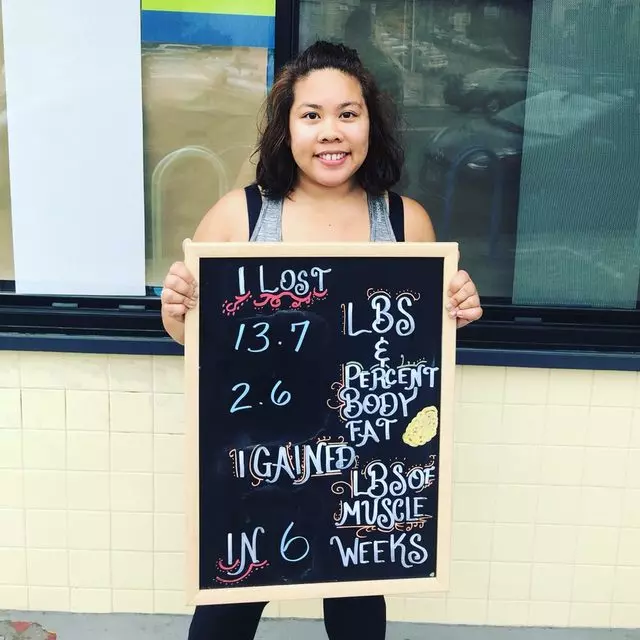 I LOST
13.7 LBS
&
2.6 PERCENT
BODY
FAT
I GAINED
LBS OF
MUSCLE
IN 6 WEEKS